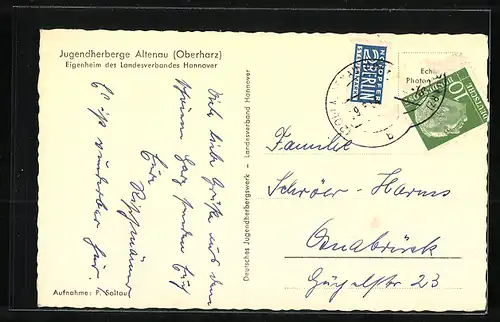 Jugendherberge Altenau (Oberharz)
Eigenheim des Landesverbandes Hannover
Viele liebe Grüße aus dem
Harz senden Euch
Eure
Es ist wunderbar hier.
Aufnahme: P. Soltau
Deutsches Jugendherbergswerk - Landesverband Hannover
NOTOPFER
2 BERLIN
STEUERMARKE
Echte
Photo
10
Familie
Schröer-Harms
Osnabrück
23